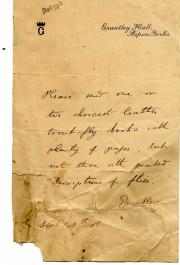 G
Grantley Hall,
Ripon, Yorks.
Please send one or
two choicest leather
trout-fly books with
plenty of pages but
not them with printed
descriptions of flies.
Sept 28th